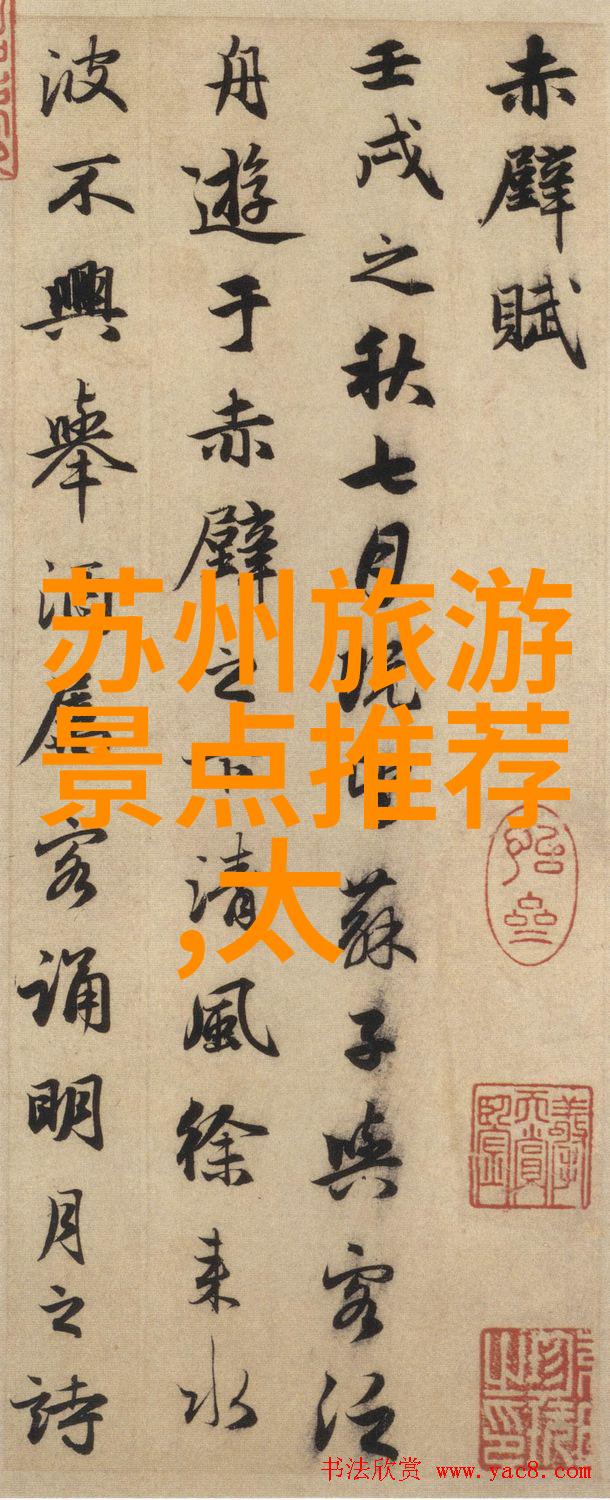 赤壁賦
壬戌之秋七月既望蘇子與客泛
舟遊于赤壁之下清風徐來水
波不興舉酒屬客誦明月之詩
苏州旅游
景点推荐
,太
书法欣赏 www.yac8.com